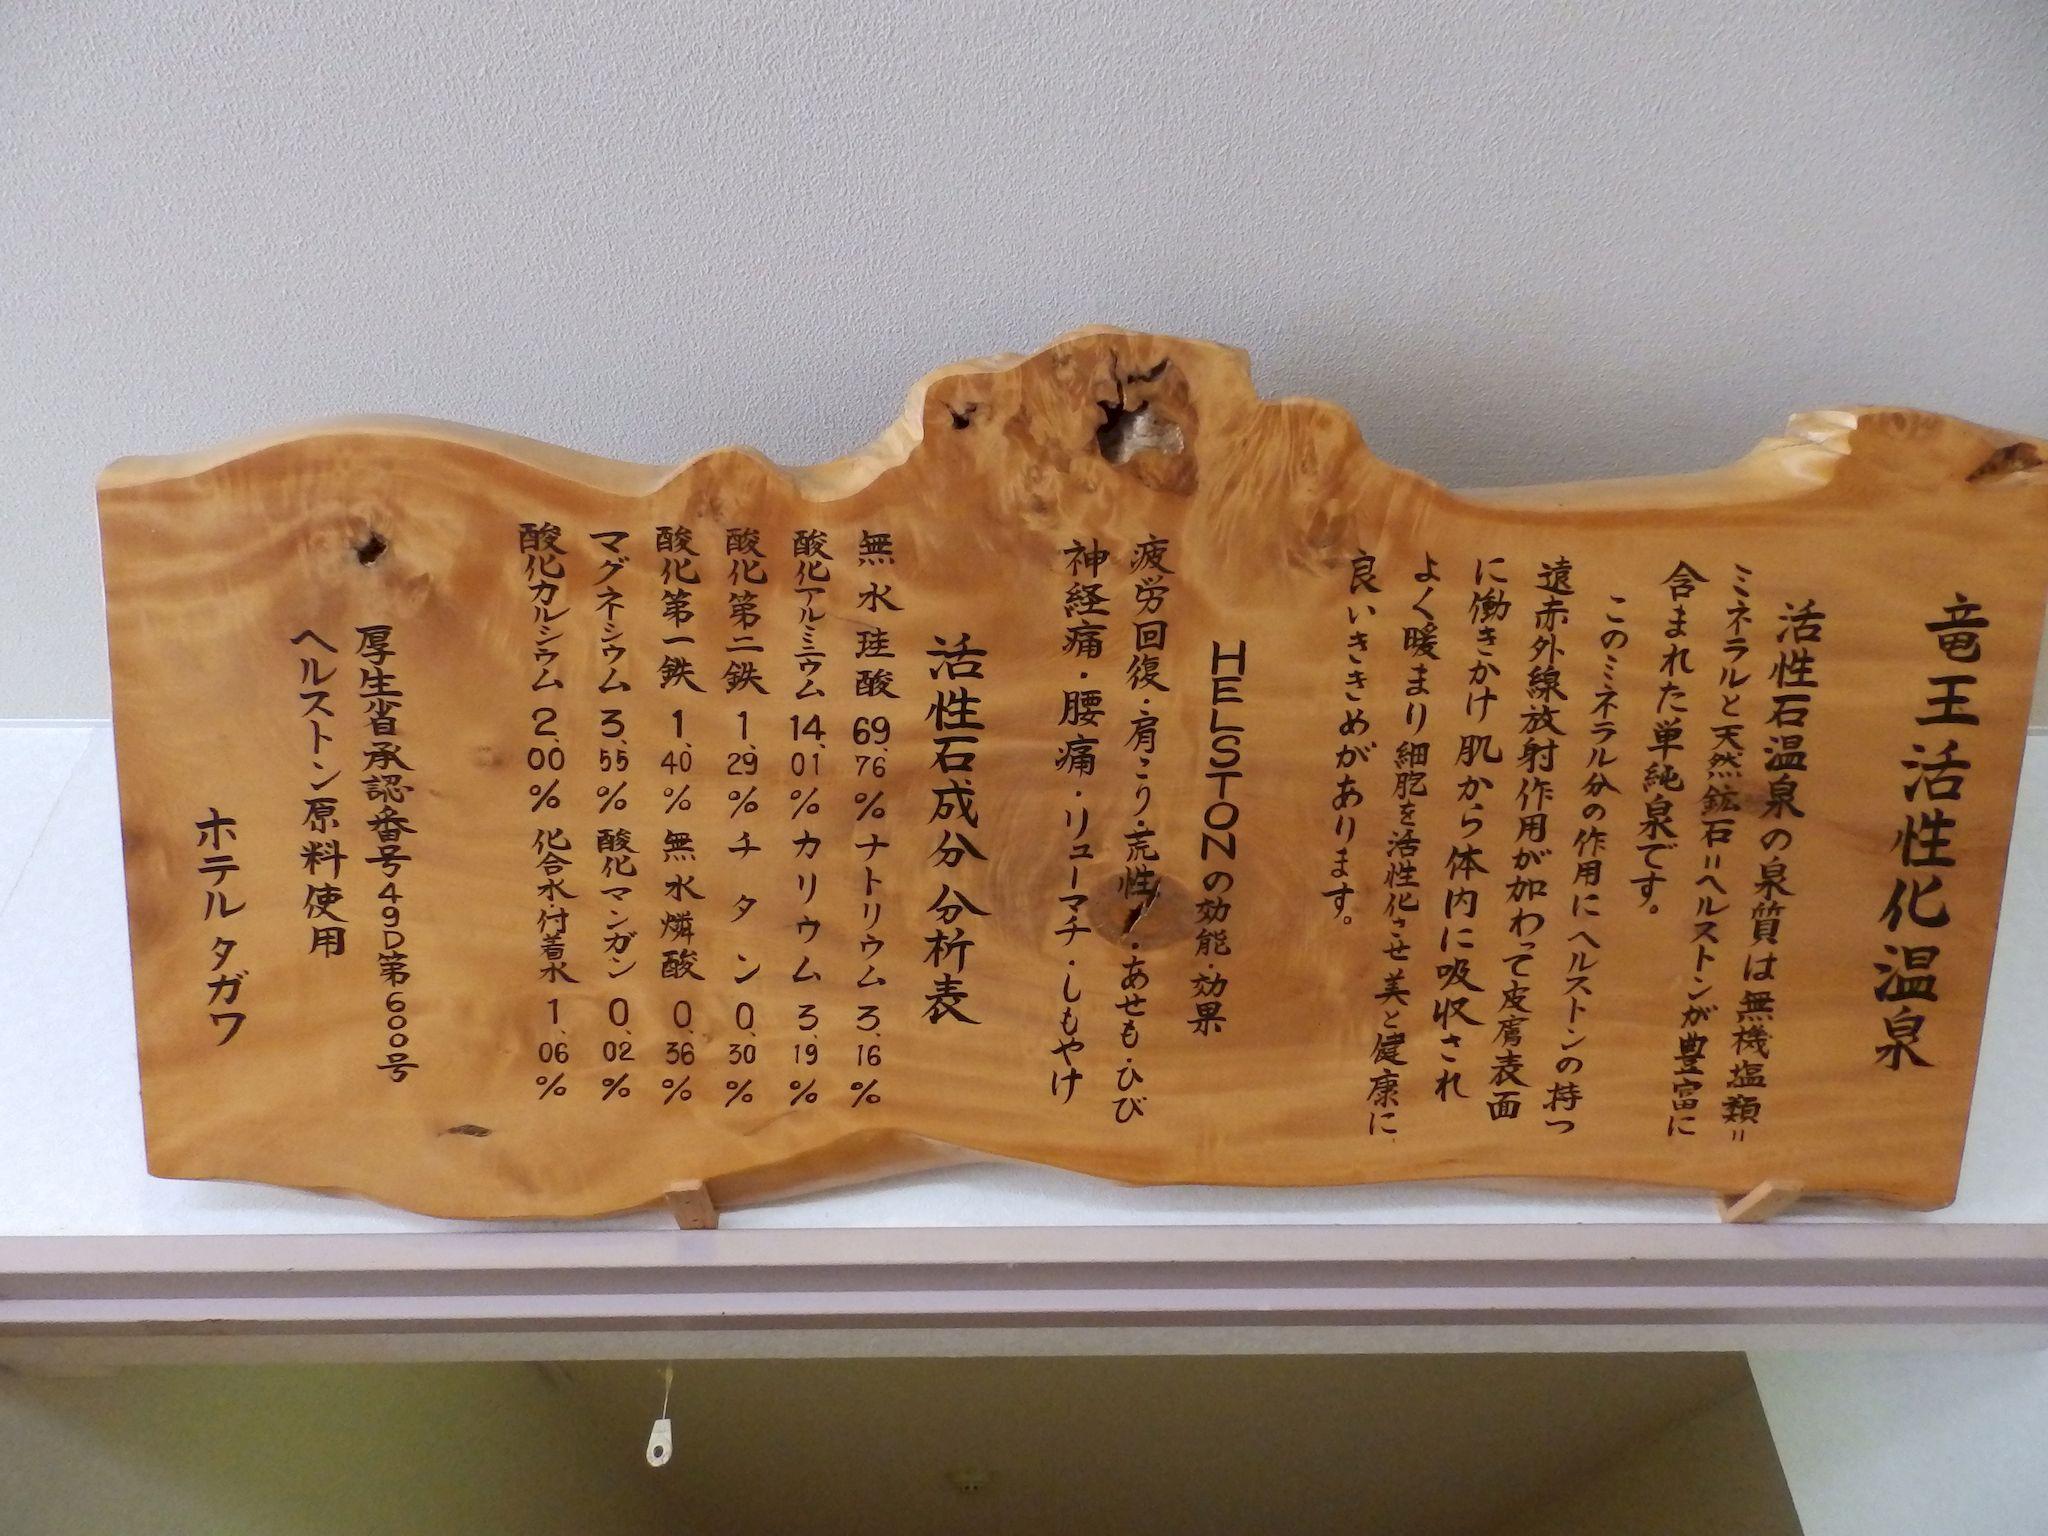 竜王活性化温泉
活性石温泉の泉質は無機塩類=
ミネラルと天然鉱石=ヘルストンが豊富に
含まれた単純泉です。
このミネラル分の作用にヘルストンの持つ
遠赤外線放射作用が加わって皮膚表面
に働きかけ肌から体内に吸収され
よく暖まり細胞を活性化させ美と健康に
良いききめがあります。
HELSTONの効能・効果
疲労回復・肩こり・荒性・あせも・ひび
神経痛・腰痛・リューマチ・しもやけ
活性石成分分析表
無水珪酸 69.76% ナトリウム 3.16%
酸化アルミニウム 14.01% カリウム 3.19%
酸化第二鉄 1.29% チタン 0.30%
酸化第一鉄 1.40% 無水燐酸 0.36%
マグネシウム 3.55% 酸化マンガン 0.02%
酸化カルシウム 2.00% 化合水・付着水 1.06%
厚生省承認番号49D第600号
ヘルストン原料使用
ホテルタガワ